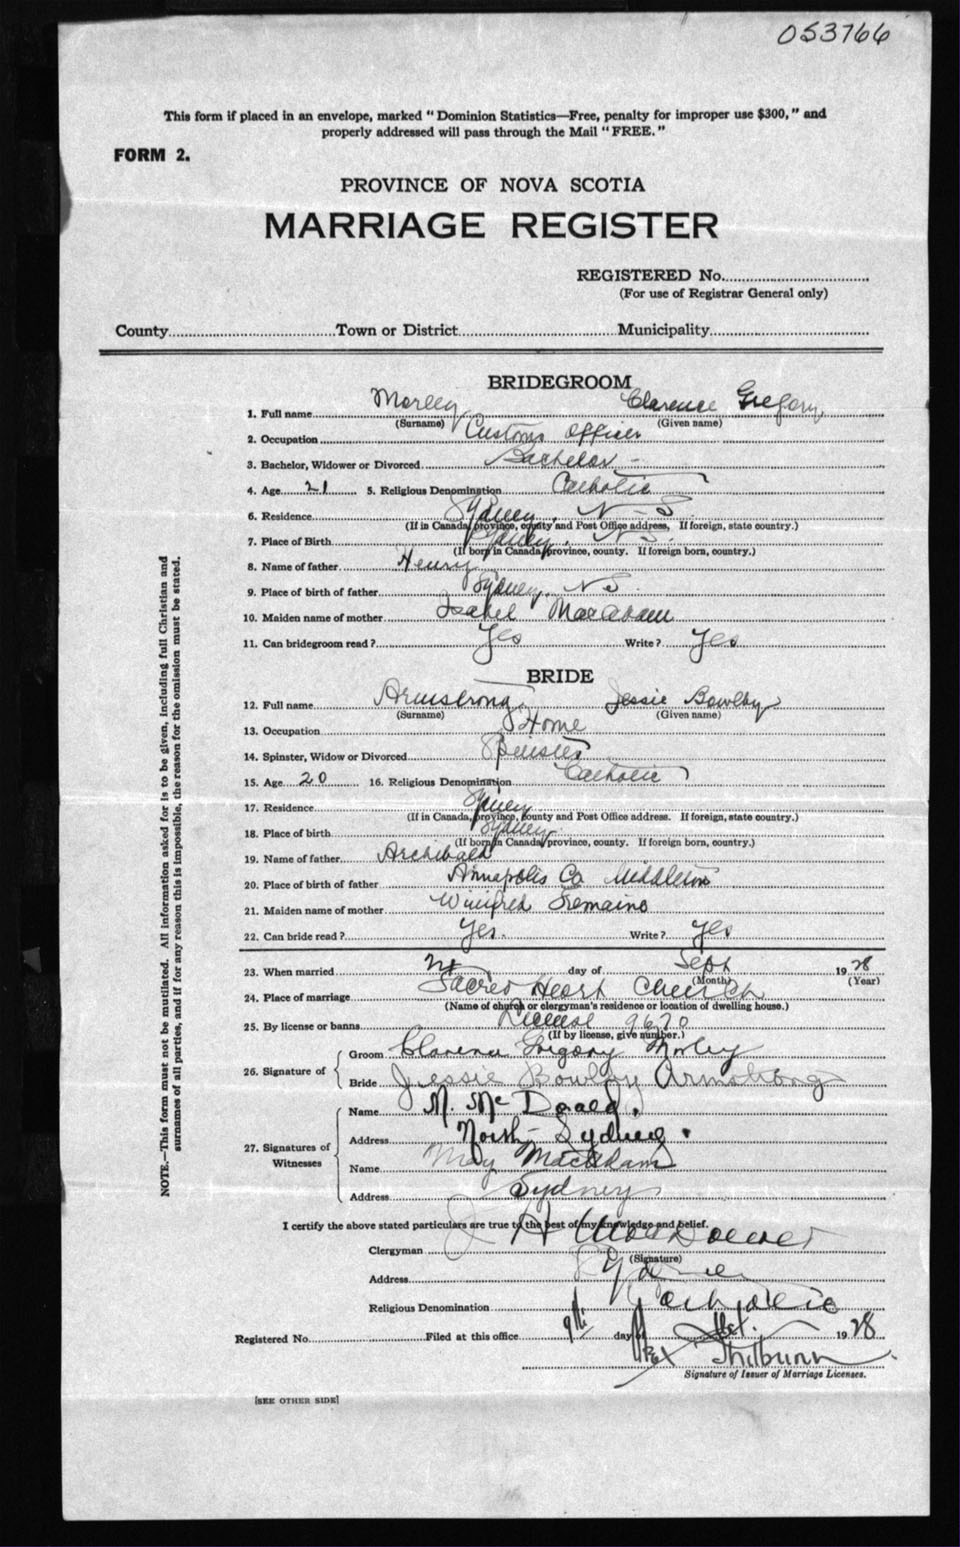 053766
This form if placed in an envelope, marked "Dominion Statistics—Free, penalty for improper use $300," and
properly addressed will pass through the Mail "FREE."
FORM 2.
PROVINCE OF NOVA SCOTIA
MARRIAGE REGISTER
REGISTERED No.
(For use of Registrar General only)
County Town or District Municipality
BRIDEGROOM
1. Full name Morley Clarence Gregory
(Surname) (Given name)
2. Occupation Customs Officer
3. Bachelor, Widower or Divorced Bachelor
4. Age 21 5. Religious Denomination Catholic
6. Residence Sydney, N-S
(If in Canada, province, county and Post Office address. If foreign, state country.)
7. Place of Birth Sydney, N.S.
(If born in Canada, province, county. If foreign born, country.)
8. Name of father Henry
9. Place of birth of father Sydney, NS
10. Maiden name of mother Isabel
11. Can bridegroom read? Yes Write? Yes
BRIDE
12. Full name Armstrong, Jessie Bowlby
(Surname) (Given name)
13. Occupation Home
14. Spinster, Widow or Divorced Spinster
15. Age 20 16. Religious Denomination Catholic
17. Residence Sydney
(If in Canada, province, county and Post Office address. If foreign, state country.)
18. Place of birth Sydney
(If born in Canada, province, county. If foreign born, country.)
19. Name of father Archibald
20. Place of birth of father Annapolis Co Middleton
21. Maiden name of mother Winifred Tremaine
22. Can bride read? Yes. Write? Yes
23. When married day of Sept 1928
(Month) (Year)
24. Place of marriage Sacred Heart Church
(Name of church or clergyman's residence or location of dwelling house.)
25. By license or banns License 9670
(If by license, give number.)
26. Signature of
Groom Clarence Gregory Morley
Bride Jessie Bowlby Armstrong
27. Signatures of Witnesses
Name M. McDonald.
Address North Sydney.
Name May
Address Sydney
I certify the above stated particulars are true to the best of my knowledge and belief.
Clergyman
(Signature)
Address Sydney
Religious Denomination Catholic
Registered No. Filed at this office 9th day of Oct. 1928
Signature of Issuer of Marriage Licenses.
[SEE OTHER SIDE]
NOTE.—This form must not be mutilated. All information asked for is to be given, including full Christian and
surnames of all parties, and if for any reason this is impossible, the reason for the omission must be stated.